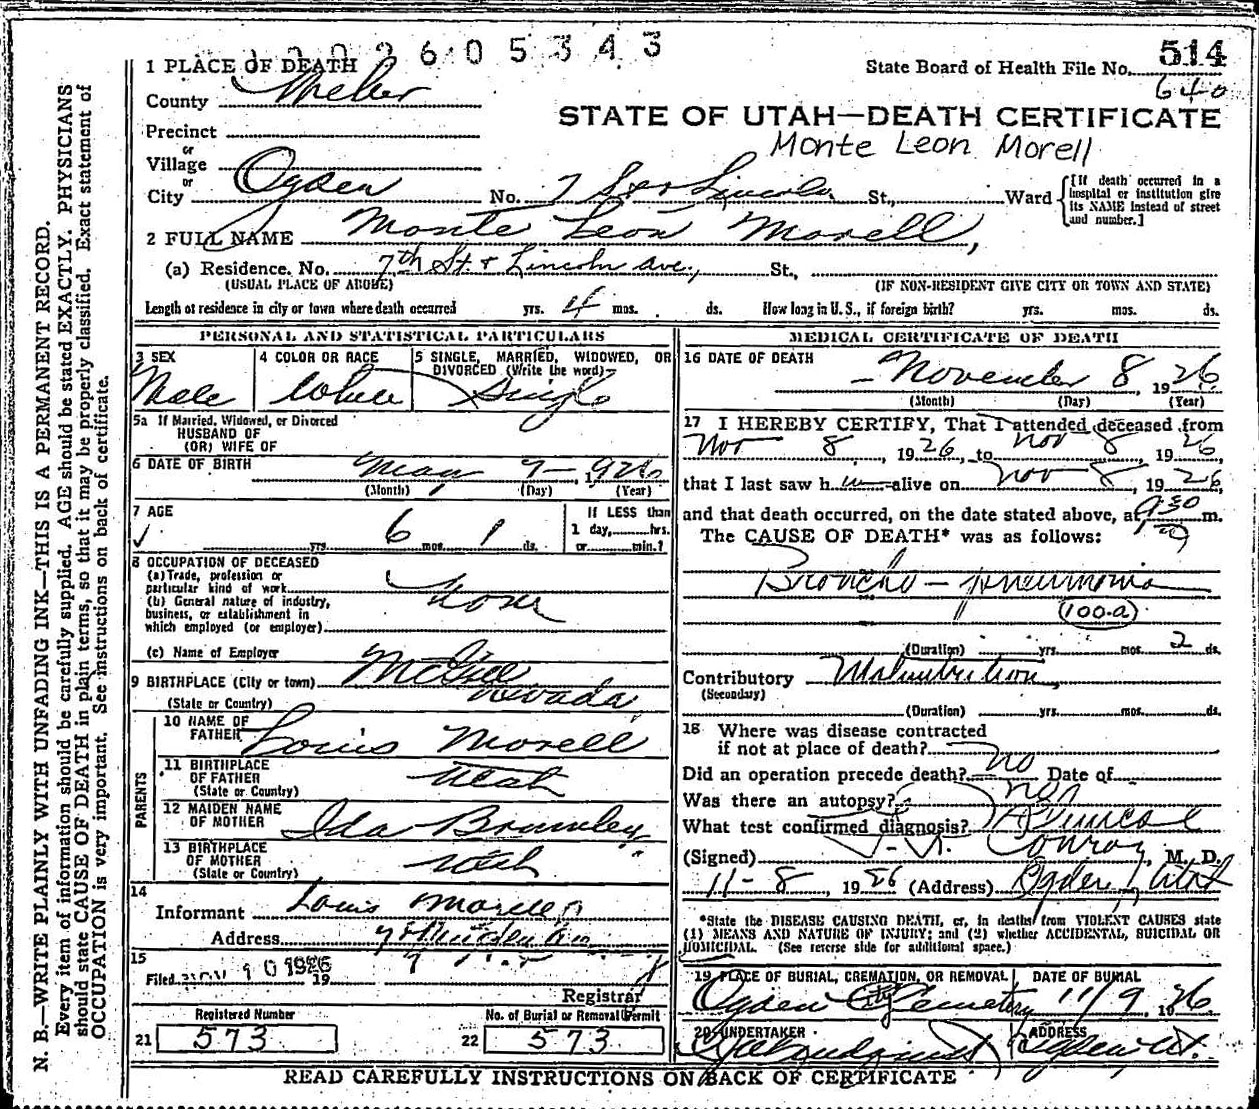 1002605343
514
1 PLACE OF DEATH
State Board of Health File No.
640
County Weber
STATE OF UTAH—DEATH CERTIFICATE
Precinct
Monte Leon Morell
or
Village
or
City Ogden No. 7 St & Lincoln St., Ward [If death occurred in a hospital or institution give its NAME instead of street and number.]
2 FULL NAME Monte Leon Morell,
(a) Residence. No. 7th St. & Lincoln Ave., St.,
(USUAL PLACE OF ABODE) (IF NON-RESIDENT GIVE CITY OR TOWN AND STATE)
Length of residence in city or town where death occurred yrs. 4 mos. ds. How long in U. S., if foreign birth? yrs. mos. ds.
PERSONAL AND STATISTICAL PARTICULARS
3 SEX
Male
4 COLOR OR RACE
White
5 SINGLE, MARRIED, WIDOWED, OR DIVORCED (Write the word)
Single
5a If Married, Widowed, or Divorced
HUSBAND OF
(OR) WIFE OF
6 DATE OF BIRTH May 7- 1926
(Month) (Day) (Year)
7 AGE
yrs. 6 mos. 1 ds.
If LESS than
1 day, hrs.
or min.?
8 OCCUPATION OF DECEASED
(a) Trade, profession or
particular kind of work
(b) General nature of industry,
business, or establishment in
which employed (or employer)
None
(c) Name of Employer
9 BIRTHPLACE (City or town) McGill
Nevada
(State or Country)
PARENTS
10 NAME OF
FATHER Louis Morell
11 BIRTHPLACE
OF FATHER Utah
(State or Country)
12 MAIDEN NAME
OF MOTHER Ida Bromley
13 BIRTHPLACE
OF MOTHER Utah
(State or Country)
14
Informant Louis Morell
Address
15
Filed NOV 10 1926 19
Registrar
Registered Number
21 573
No. of Burial or Removal Permit
22 573
MEDICAL CERTIFICATE OF DEATH
16 DATE OF DEATH
November 8, 1926
(Month) (Day) (Year)
17 I HEREBY CERTIFY, That I attended deceased from
Nov 8, 1926, to Nov 8, 1926,
that I last saw h im alive on Nov 8, 1926,
and that death occurred, on the date stated above, at 930 m.
The CAUSE OF DEATH* was as follows:
Broncho-pneumonia
(100.a)
(Duration) yrs. mos. 2 ds.
Contributory Malnutrition,
(Secondary)
(Duration) yrs. mos. ds.
18 Where was disease contracted
if not at place of death?
Did an operation precede death? no Date of
Was there an autopsy? no
What test confirmed diagnosis? Clinical
(Signed) Conroy, M. D.
11-8, 1926 (Address) Ogden, Utah
*State the DISEASE CAUSING DEATH, or, in deaths from VIOLENT CAUSES state
(1) MEANS AND NATURE OF INJURY; and (2) whether ACCIDENTAL, SUICIDAL OR
HOMICIDAL. (See reverse side for additional space.)
19 PLACE OF BURIAL, CREMATION, OR REMOVAL
Ogden City Cemetery
DATE OF BURIAL
11/9 1926
20 UNDERTAKER
ADDRESS
Ogden Ut.
READ CAREFULLY INSTRUCTIONS ON BACK OF CERTIFICATE
N. B.—WRITE PLAINLY WITH UNFADING INK—THIS IS A PERMANENT RECORD.
Every item of information should be carefully supplied. AGE should be stated EXACTLY. PHYSICIANS
should state CAUSE OF DEATH in plain terms, so that it may be properly classified. Exact statement of
OCCUPATION is very important. See instructions on back of certificate.